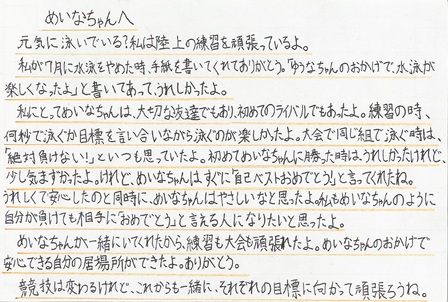 めいなちゃんへ
元気に泳いでいる?私は陸上の練習を頑張っているよ。
私が7月に水泳をやめた時、手紙を書いてくれてありがとう。「ゆうなちゃんのおかげで、水泳が
楽しくなったよ」と書いてあって、うれしかったよ。
私にとってめいなちゃんは、大切な友達でもあり、初めてのライバルでもあったよ。練習の時、
何秒で泳ぐか目標を言い合いながら泳ぐのが楽しかったよ。大会で同じ組で泳ぐ時は、
「絶対負けない!」といつも思っていたよ。初めてめいなちゃんに勝った時は、うれしかったけれど、
少し気まずかったよ。けれど、めいなちゃんはすぐに「自己ベストおめでとう」と言ってくれたね。
うれしくて安心したのと同時に、めいなちゃんはやさしいなと思ったよ。私もめいなちゃんのように
自分が負けても相手に「おめでとう」と言える人になりたいと思ったよ。
めいなちゃんが一緒にいてくれたから、練習も大会も頑張れたよ。めいなちゃんのおかげで
安心できる自分の居場所ができたよ。ありがとう。
競技は変わるけれど、これからも一緒に、それぞれの目標に向かって頑張ろうね。